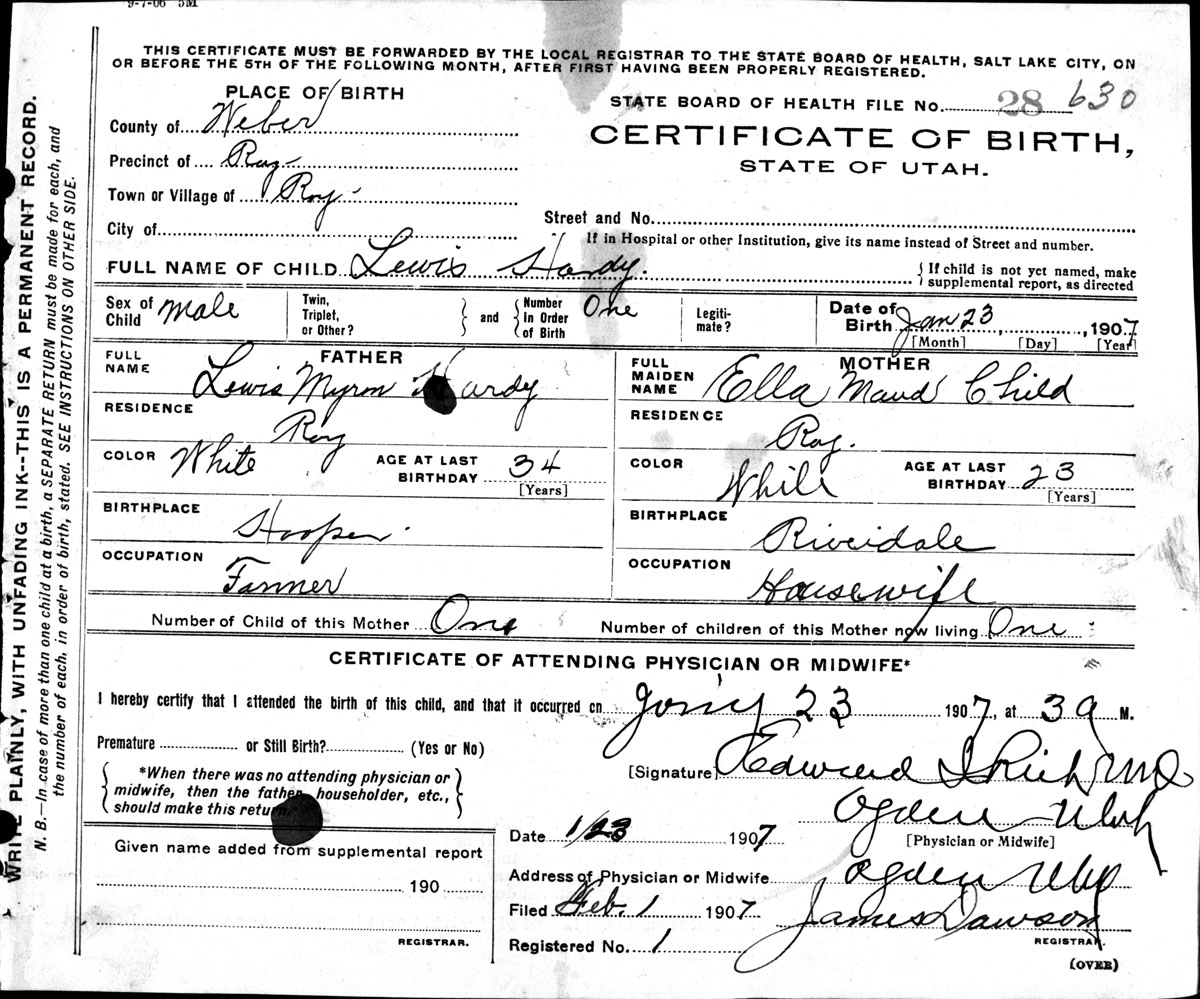 9-7-06 5M
THIS CERTIFICATE MUST BE FORWARDED BY THE LOCAL REGISTRAR TO THE STATE BOARD OF HEALTH, SALT LAKE CITY, ON
OR BEFORE THE 5TH OF THE FOLLOWING MONTH, AFTER FIRST HAVING BEEN PROPERLY REGISTERED.
PLACE OF BIRTH
STATE BOARD OF HEALTH FILE No. 28 630
County of Weber
CERTIFICATE OF BIRTH,
Precinct of Roy
STATE OF UTAH.
Town or Village of Roy
Street and No.
City of
If in Hospital or other Institution, give its name instead of Street and number.
FULL NAME OF CHILD Lewis Hardy.
If child is not yet named, make
supplemental report, as directed
Sex of Child Male
Twin, Triplet, or Other?
and
Number in Order of Birth One
Legitimate?
Date of Birth Jan 23, 1907
[Month] [Day] [Year]
FATHER
FULL NAME Lewis Myron Hardy
RESIDENCE Roy
COLOR White
AGE AT LAST BIRTHDAY 34
[Years]
BIRTHPLACE Hooper
OCCUPATION Farmer
MOTHER
FULL MAIDEN NAME Ella Maud Child
RESIDENCE Roy.
COLOR White
AGE AT LAST BIRTHDAY 23
[Years]
BIRTHPLACE Riverdale
OCCUPATION Housewife
Number of Child of this Mother One
Number of children of this Mother now living One
CERTIFICATE OF ATTENDING PHYSICIAN OR MIDWIFE*
I hereby certify that I attended the birth of this child, and that it occurred on 23 1907, at 3 M.
Premature or Still Birth? (Yes or No)
*When there was no attending physician or
midwife, then the father, householder, etc.,
should make this return.
[Signature] Edward I Rich MD
Ogden Utah
[Physician or Midwife]
Date 1/23 1907
Address of Physician or Midwife Ogden Utah
Given name added from supplemental report
190
REGISTRAR.
Filed Feb. 1 1907
James Dawson
REGISTRAR.
Registered No. 1
(OVER)
WRITE PLAINLY, WITH UNFADING INK--THIS IS A PERMANENT RECORD.
N. B.—In case of more than one child at a birth, a SEPARATE RETURN must be made for each, and
the number of each, in order of birth, stated. SEE INSTRUCTIONS ON OTHER SIDE.